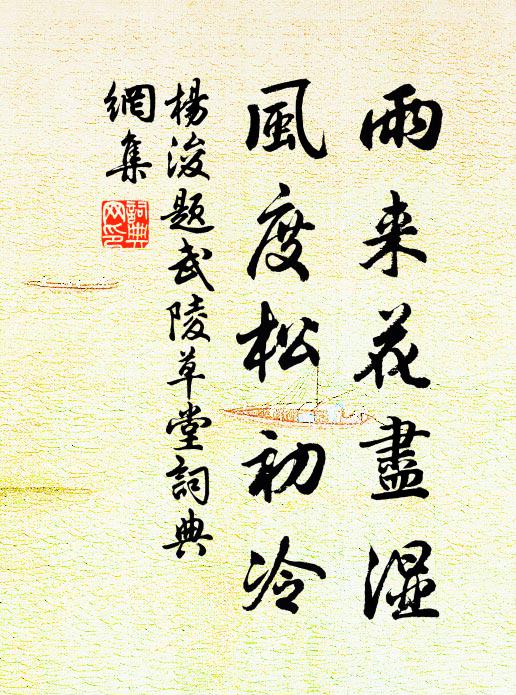 雨来花盡湿
風度松初冷
楊浚題武陵草堂詞典
網集
詞典
网印